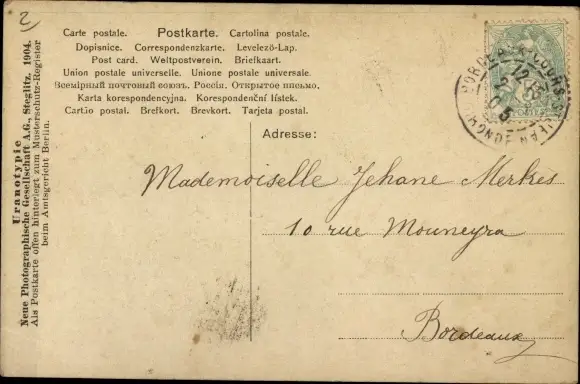 2
Carte postale. Postkarte. Cartolina postale.
Dopisnice. Correspondenzkarte. Levelező-Lap.
Post card. Weltpostverein. Briefkaart.
Union postale universelle. Unione postale universale.
Всемірный почтовый союзъ. Россия. Открытое письмо.
Karta korespondencyjna. Korespondenční lístek.
Cartão postal. Brefkort. Brevkort. Tarjeta postal.
Adresse:
Mademoiselle Jehane Merkès
10 rue Mouneyra
Bordeaux
Uranotypie
Neue Photographische Gesellschaft A.G., Steglitz. 1904.
Als Postkarte offen hinterlegt zum Musterschutz-Register
beim Amtsgericht Berlin.